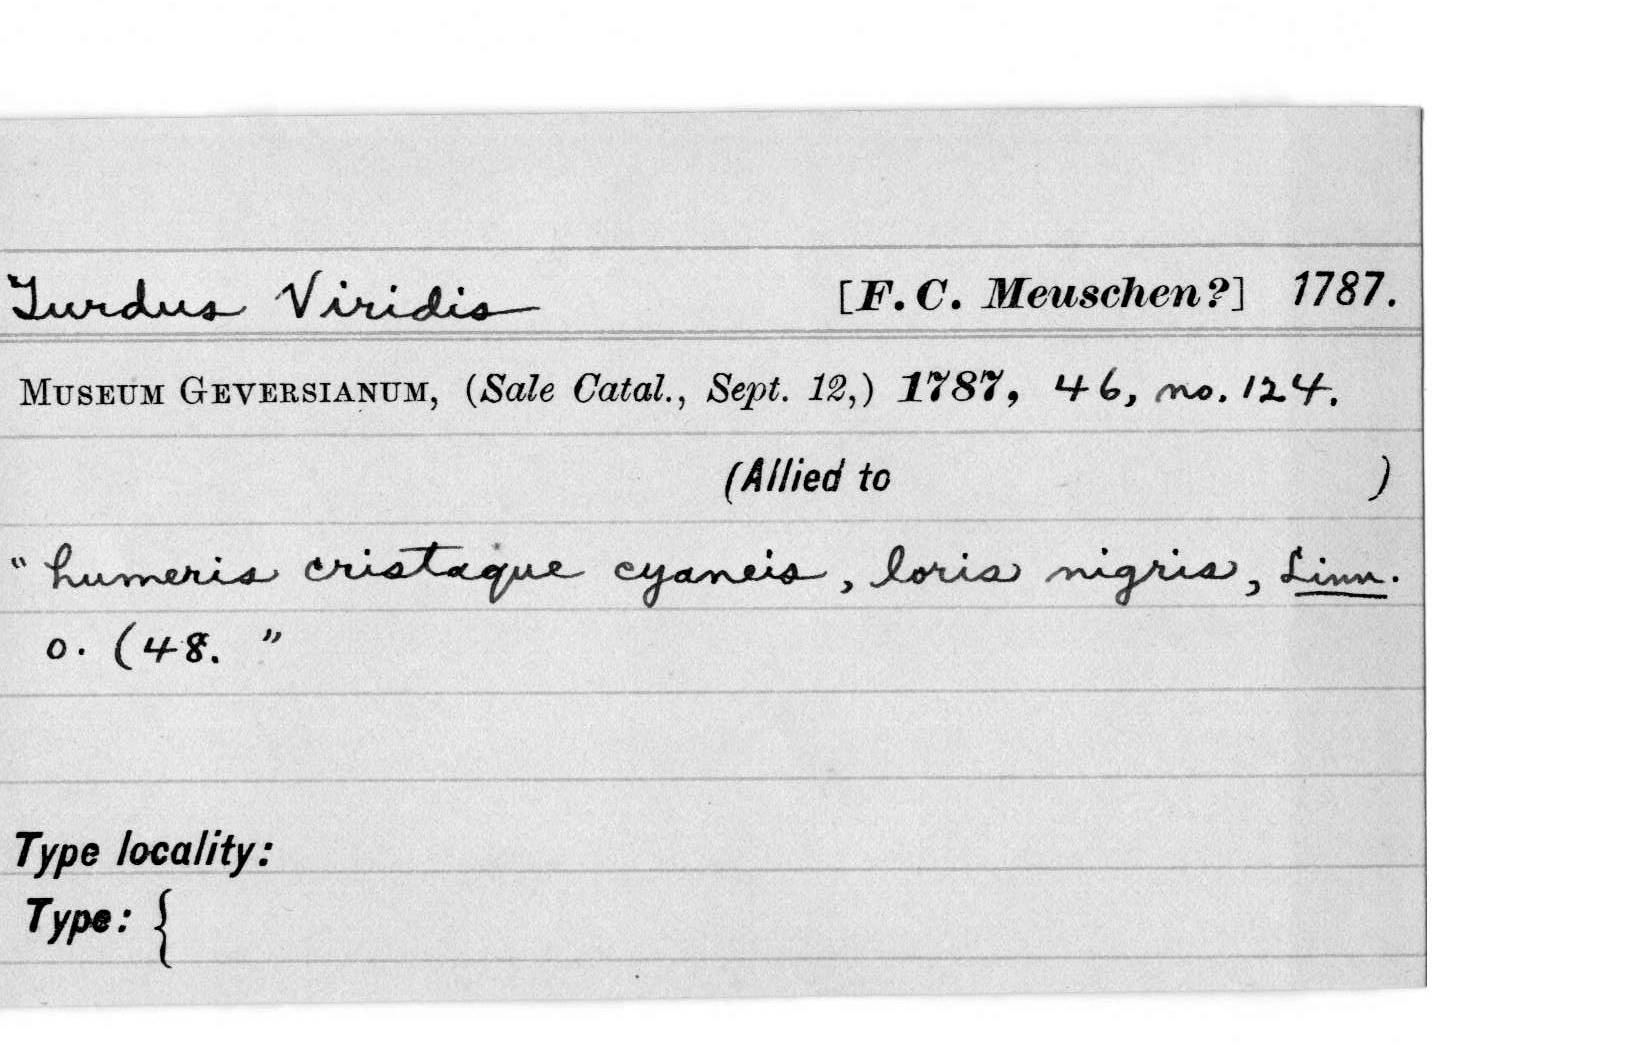 Turdus Viridis [F. C. Meuschen?] 1787.
MUSEUM GEVERSIANUM, (Sale Catal., Sept. 12,) 1787, 46, no. 124.
(Allied to )
"humeris cristaque cyaneis, loris nigris, Linn.
o. (48. "
Type locality:
Type: {